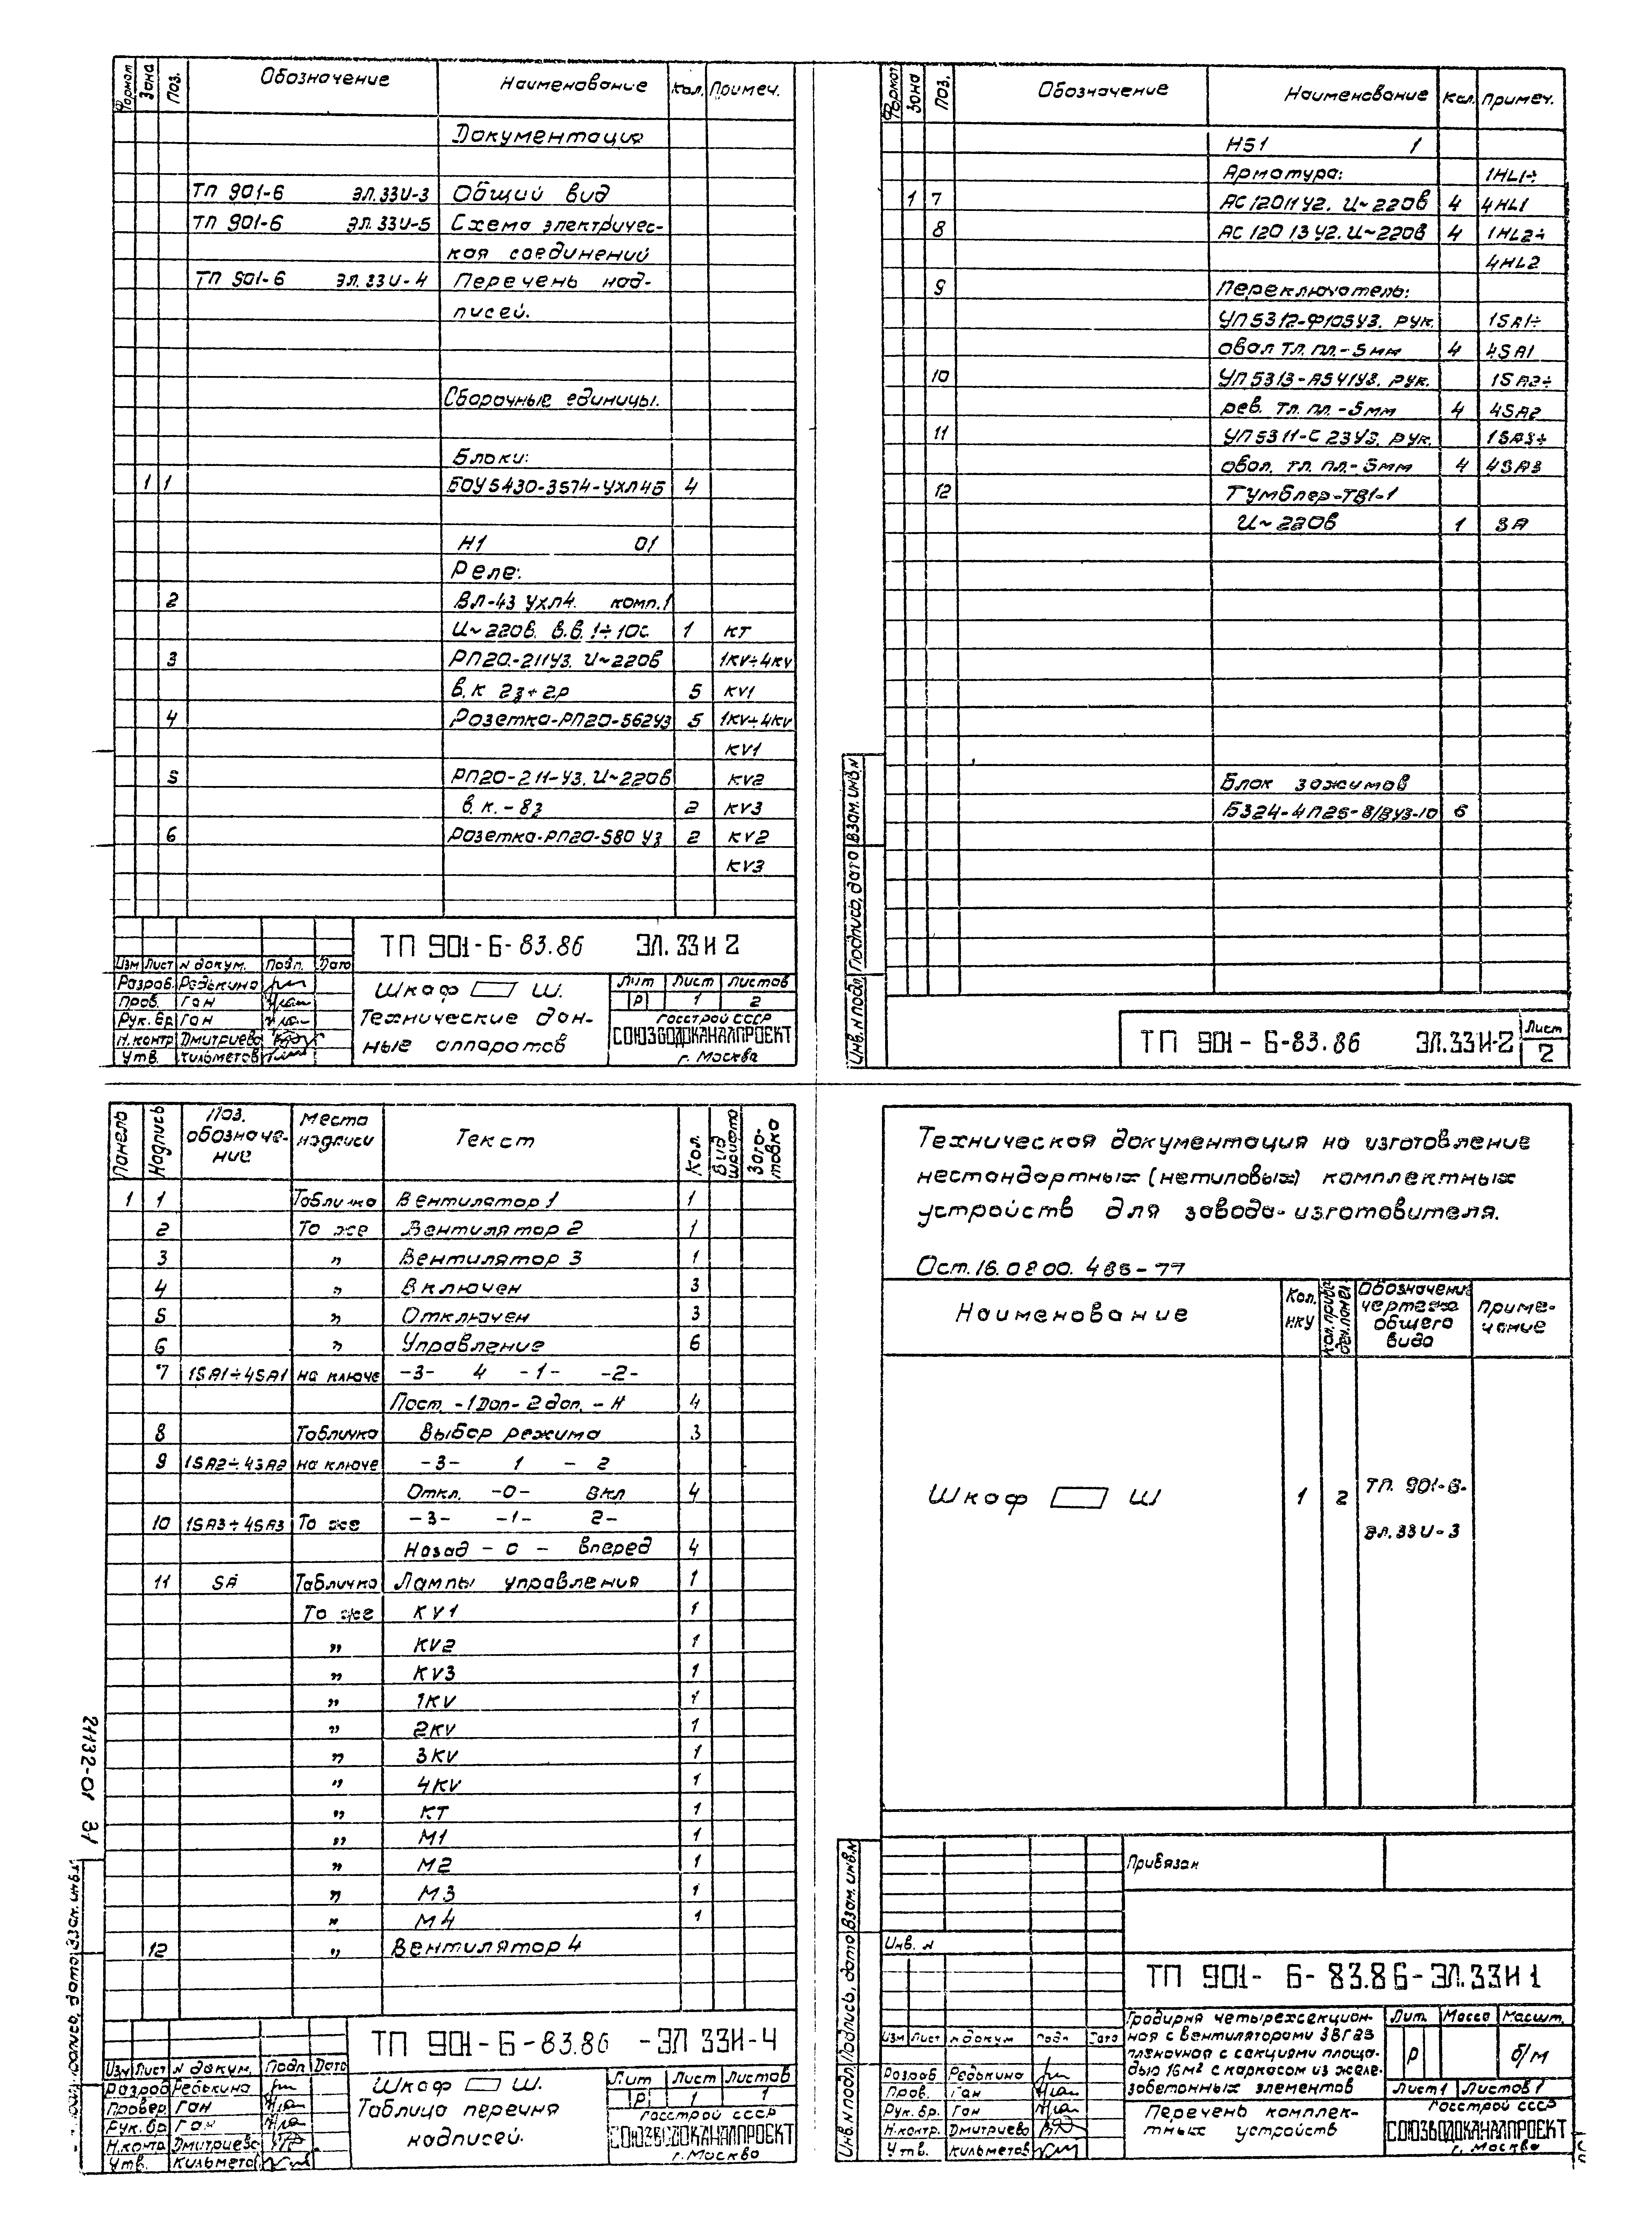 Формат Зона Поз. Обозначение Наименование Кол. Примеч.
Документация
ТП 901-6 ЭЛ.33И-3 Общий вид
ТП 901-6 ЭЛ.33И-5 Схема электричес-
кая соединений
ТП 901-6 ЭЛ.33И-4 Перечень над-
писей.
Сборочные единицы.
Блоки:
1 1 БОУ5430-3574-УХЛ4Б 4
Н1 01
Реле:
2 ВЛ-43 УХЛ4. комп.1
И~220в. в.в. 1÷10с. 1 КТ
3 РП20.-211У3. И~220в 1KV÷4KV
в.к 2з+2р 5 KV1
4 Розетка-РП20-562У3 5 1KV÷4KV
KV1
5 РП20-211-У3. И~220в KV2
в.к.-8з 2 KV3
6 Розетка-РП20-580 У3 2 KV2
KV3
ТП 901-6-83.86 ЭЛ.33И 2
Изм Лист N докум. Подп. Дата
Разраб. Редькина
Пров. Ган
Рук.бр. Ган
Н.контр Дмитриева
Утв. Кильметов
Шкаф Ш.
Технические дан-
ные аппаратов
Лит Лист Листов
Р 1 2
Госстрой СССР
СОЮЗВОДОКАНАЛПРОЕКТ
г. Москва
Формат Зона Поз. Обозначение Наименование Кол. Примеч.
Н51 1
Арматура: 1HL1÷
1 7 АС12011У2. И~220в 4 4HL1
8 АС12013У2. И~220в 4 1HL2÷
4HL2
9 Переключатель:
УП5312-Ф105У3. рук. 1SA1÷
овал тл. пл.-5мм 4 4SA1
10 УП5313-А541У3. рук. 1SA2÷
рев. тл. пл.-5мм 4 4SA2
11 УП5311-С23У3. рук. 1SA3÷
овал. тл. пл.-5мм 4 4SA3
12 Тумблер-ТВ1-1
И~220в 1 SA
Блок зажимов
Б324-4П25-В/ВУ3-10 6
Инв.N подл. Подпись, дата Взам.инв.N
ТП 901-6-83.86 ЭЛ.33И-2
Лист
2
Панель Надпись Поз. обозначе-ние Место надписи Текст Кол. Вид шрифта Заго-товка
1 1 Табличка Вентилятор 1 1
2 То же Вентилятор 2 1
3 " Вентилятор 3 1
4 " Включен 3
5 " Отключен 3
6 " Управление 6
7 1SA1÷4SA1 на ключе -3- 4 -1- -2-
Пост. -1Доп-2доп. -Н 4
8 Табличка Выбор режима 3
9 1SA2÷4SA2 на ключе -3- 1 - 2
Откл. -0- Вкл 4
10 1SA3÷4SA3 То же -3- -1- 2-
Назад - 0 - Вперед 4
11 SA Табличка Лампы управления 1
То же KV1 1
" KV2 1
" KV3 1
" 1KV 1
" 2KV 1
" 3KV 1
" 4KV 1
" КТ 1
" М1 1
" М2 1
" М3 1
" М4 1
12 " Вентилятор 4
21132-01 31
ТП 901-6-83.86 -ЭЛ 33И-4
Изм Лист N докум. Подп Дата
Разраб Редькина
Провер. Ган
Рук.бр Ган
Н.контр. Дмитриева
Утв. Кильметов
Шкаф Ш.
Таблица перечня
надписей.
Лит Лист Листов
Р 1 1
Госстрой СССР
СОЮЗВОДОКАНАЛПРОЕКТ
г. Москва
Техническая документация на изготовление
нестандартных (нетиповых) комплектных
устройств для завода-изготовителя.
Ост.16.0800.486-77
Наименование Кол. НКУ Обозначение чертежа общего вида Приме-чание
Шкаф Ш 1 2 ТП. 901-6-
ЭЛ.33И-3
Инв.N подл. Подпись, дата Взам.инв.N
Привязан
Инв. N
ТП 901-6-83.86-ЭЛ.33И 1
Изм Лист N докум Подп Дата
Разраб Редькина
Пров. Ган
Рук.бр. Ган
Н.контр. Дмитриева
Утв. Кильметов
Градирня четырехсекцион-
ная с вентиляторами 3ВГ25
пленочная с секциями площа-
дью 16м² с каркасом из желе-
зобетонных элементов
Лит. Масса Масшт.
Р б/м
Лист 1 Листов 1
Перечень комплек-
тных устройств
Госстрой СССР
СОЮЗВОДОКАНАЛПРОЕКТ
г. Москва